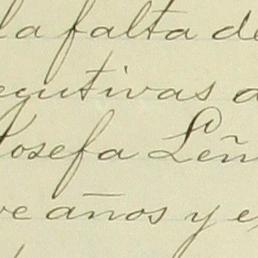 la falta de
ecutivas a
Josefa Leñ
ve años y e